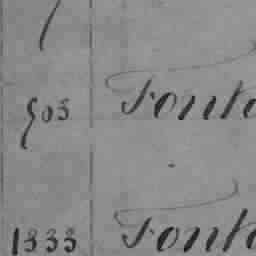 503 Fonta
1333 Fonta